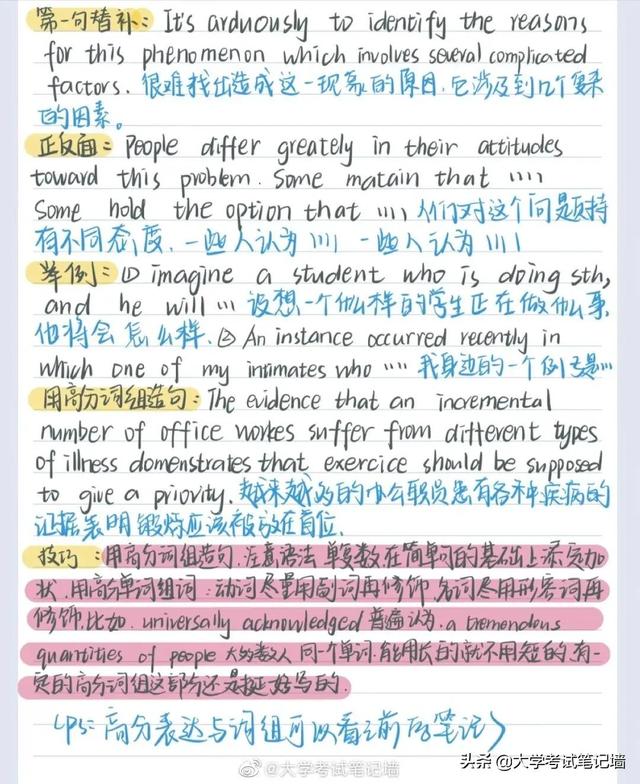 第一句替补: It's arduously to identify the reasons
for this phenomenon which involves several complicated
factors. 很难找出造成这一现象的原因,它涉及到几个复杂
的因素。
正反面: People differ greately in their attitudes
toward this problem. Some matain that ····
Some hold the option that ····, 人们对这个问题持
有不同态度,一些人认为 ···· 一些人认为 ····
举例: ① imagine a student who is doing sth,
and he will ··· 设想一个什么样的学生正在做什么事,
他将会怎么样. ② An instance occurred recently in
which one of my inimates who ···· 我身边的一个例子是···
用高分词组造句: The evidence that an incremental
number of office workes suffer from different types
of illness domenstrates that exercice should be supposed
to give a priovity. 越来越多的办公职员患有各种疾病的
证据表明锻炼应该被放在首位.
技巧: 用高分词组造句,注意语法 单复数在简单句的基础上添加
状,用高分单词组词: 动词尽量用副词再修饰,名词尽用形容词再
修饰,比如. universally acknowledged 普遍认为, a tremendous
quantities of people 大多数人 同一个单词,能用长的就不用短的,有一
定的高分词组这部分还是挺好写的.
(PS: 高分表达与词组可以看之前的笔记)
@大学考试笔记墙
头条 @大学考试笔记墙